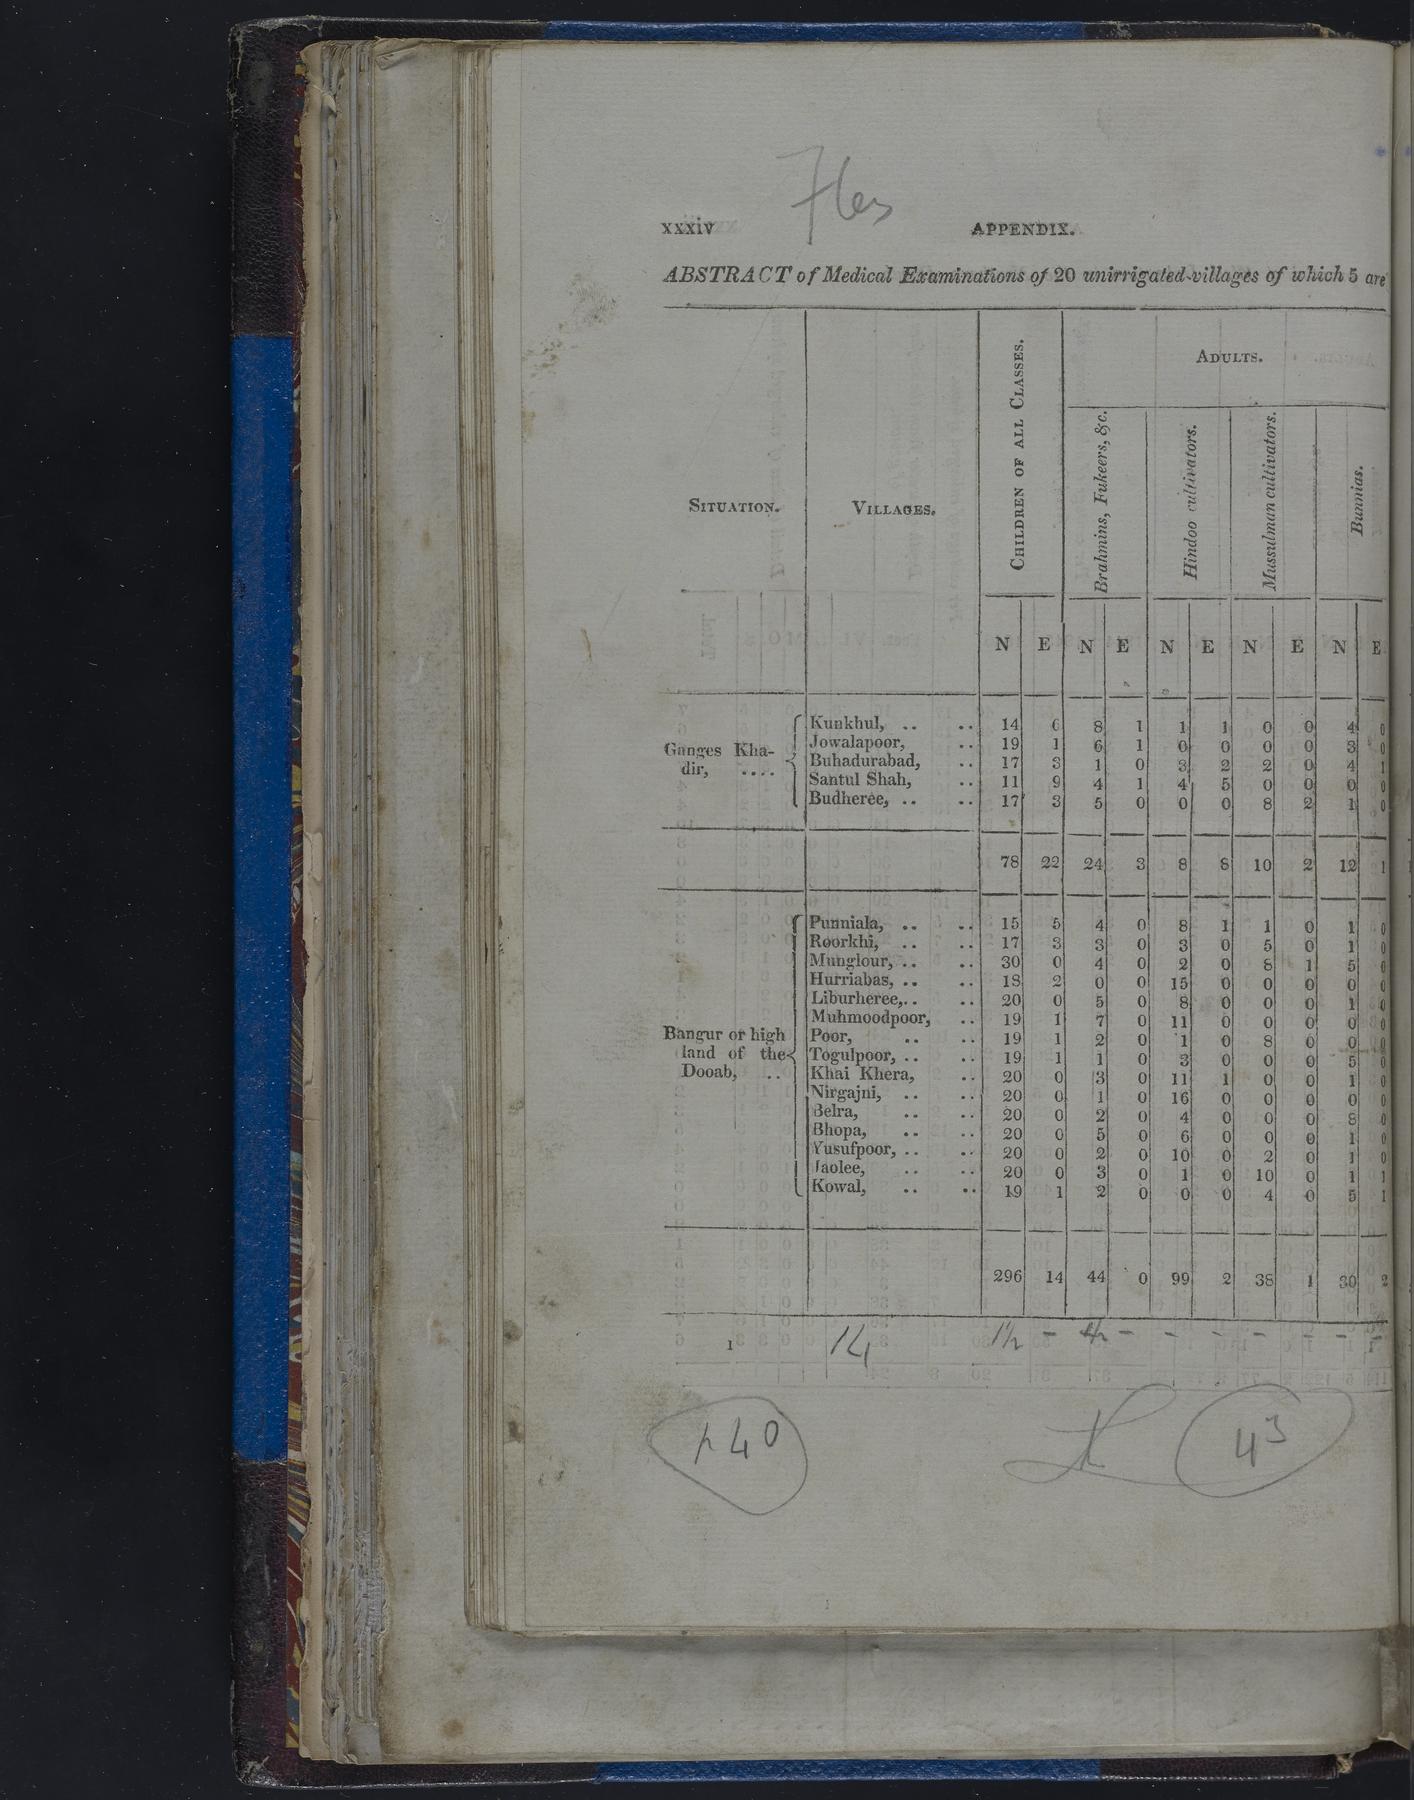 7les
xxxiv APPENDIX.
ABSTRACT of Medical Examinations of 20 unirrigated villages of which 5 are
SITUATION. VILLAGES. CHILDREN OF ALL CLASSES. ADULTS.
Brahmins, Fukeers, &c. Hindoo cultivators. Mussulman cultivators. Bunnias.
N E N E N E N E N E
Ganges Kha-
dir, ....
Kunkhul, .. .. 14 6 8 1 1 1 0 0 4 0
Jowalapoor, .. 19 1 6 1 0 0 0 0 3 0
Buhadurabad, .. 17 3 1 0 3 2 2 0 4 1
Santul Shah, .. 11 9 4 1 4 5 0 0 0 0
Budheree, .. .. 17 3 5 0 0 0 8 2 1 0
78 22 24 3 8 8 10 2 12 1
Bangur or high
land of the
Dooab, ..
Punniala, .. .. 15 5 4 0 8 1 1 0 1 0
Roorkhi, .. .. 17 3 3 0 3 0 5 0 1 0
Munglour, .. .. 30 0 4 0 2 0 8 1 5 0
Hurriabas, .. .. 18 2 0 0 15 0 0 0 0 0
Liburheree,.. .. 20 0 5 0 8 0 0 0 1 0
Muhmoodpoor, .. 19 1 7 0 11 0 0 0 0 0
Poor, .. .. 19 1 2 0 1 0 8 0 0 0
Togulpoor, .. .. 19 1 1 0 3 0 0 0 5 0
Khai Khera, .. 20 0 3 0 11 1 0 0 1 0
Nirgajni, .. .. 20 0 1 0 16 0 0 0 0 0
Belra, .. .. 20 0 2 0 4 0 0 0 8 0
Bhopa, .. .. 20 0 5 0 6 0 0 0 1 0
Yusufpoor, .. .. 20 0 2 0 10 0 2 0 1 0
Jaolee, .. .. 20 0 3 0 1 0 10 0 1 1
Kowal, .. .. 19 1 2 0 0 0 4 0 5 1
296 14 44 0 99 2 38 1 30 2
1
43